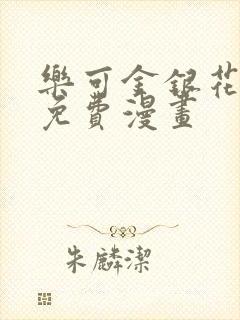 樂可金銀花
免費漫畫
朱麟潔